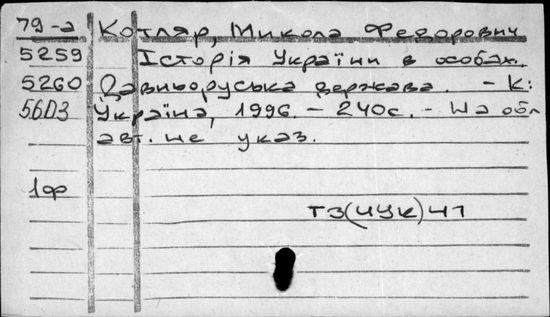 79-а Котляр, Микола Федорович
5259 Історія України в особах.
5260 Давньоруська держава. - К:
56D3 Україна, 1996. - 240с. - На обл
авт. не указ.
1ф
ТЗ(4УК)41